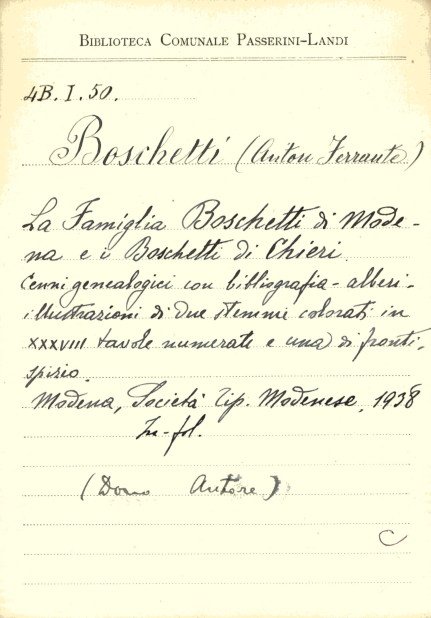 BIBLIOTECA COMUNALE PASSERINI-LANDI
4B. I. 50.
Boschetti (Anton Ferrante)
La Famiglia Boschetti di Mode-
na e i Boschetti di Chieri
Cenni genealogici con bibliografia - alberi -
illustrazioni di due stemmi colorati in
XXXVIII tavole numerate e una di fronti-
spizio.
Modena, Società Tip. Modenese, 1938
In-fol.
(Dono Autore)
C